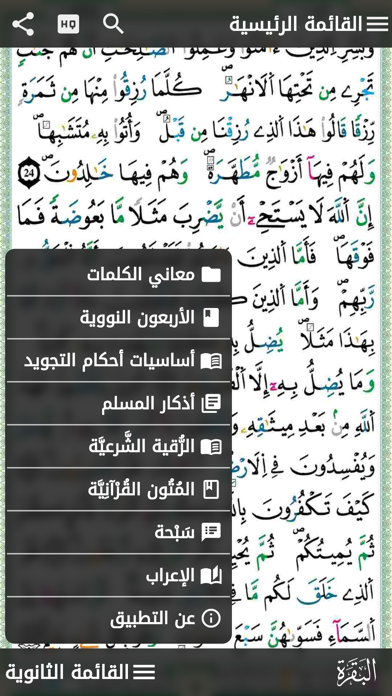 القائمة الرئيسية
HQ
وَبَشِّرِ الَّذِينَ ءَامَنُوا وَعَمِلُوا الصَّـٰلِحَـٰتِ أَنَّ لَهُمْ جَنَّـٰتٍ
تَجْرِے مِن تَحْتِهَا اَلَانْهَـٰرُۖ كُلَّمَا رُزِقُواْ مِنْهَا مِن ثَمَرَةٖ
رِّزْقاٗ قَالُواْ هَـٰذَا اَلذِے رُزِقْنَا مِن قَبْلُۖ وَأُتُواْ بِهِۦ مُتَشَـٰبِهاٗۖ
وَلَهُمْ فِيهَآ أَزْوَٰجٞ مُّطَهَّرَةٞۖ وَهُمْ فِيهَا خَـٰلِدُونَۖ 24
إِنَّ اَللَّهَ لَا يَسْتَحْيِےٓ أَنْ يَّضْرِبَ مَثَلاٗ مَّا بَعُوضَةٗ فَمَا
فَوْقَهَاۖ فَأَمَّا اَلذِينَ
رَّبِّهِمْۖ وَأَمَّا اَلذِينَ
بِهَـٰذَا مَثَلاٗۖ يُضِلُّ
وَمَا يُضِلُّ بِهِۦٓ إِلَّا
اَللَّهِ مِنۢ بَعْدِ مِيثَـٰقِهِۦ
وَيُفْسِدُونَ فِے اِلَارْضِ
كَيْفَ تَكْفُرُونَ
ثُمَّ يُمِيتُكُمْ ثُمَّ
اَلذِے خَلَقَ لَكُم مَّا
اَلسَّمَآءِ فَسَوّ۪ىٰهُنَّ سَبْعَ
معاني الكلمات
الأربعون النووية
أساسيات أحكام التجويد
أذكار المسلم
الرُّقية الشَّرعيَّة
المُتُون القُرْآنِيَّة
سَبْحة
الإعراب
عن التطبيق
القائمة الثانوية
البَقَرَة